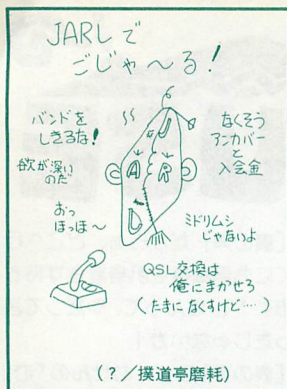 JARLで
ごじゃ〜る!
バンドを
しきるな!
欲が深い
のだ
おっ
ほっほ〜
なくそう
アンカバー
と
入会金
J
A R
L
ミドリムシ
じゃないよ
QSL交換は
俺にまかせろ
(たまになくすけど…)
(?/撲道亭磨耗)